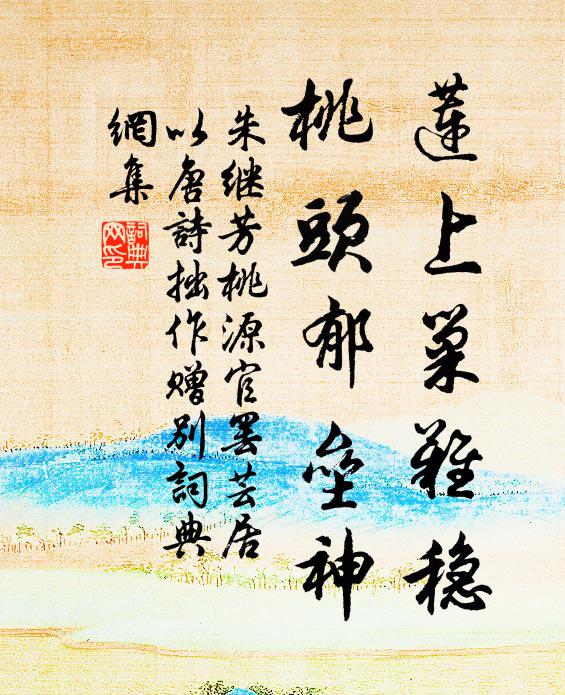 蓮上巢難稳
桃頭郁壘神
朱继芳桃源官罢芸居
以唐詩拙作赠别詞典
網集
詞典網印